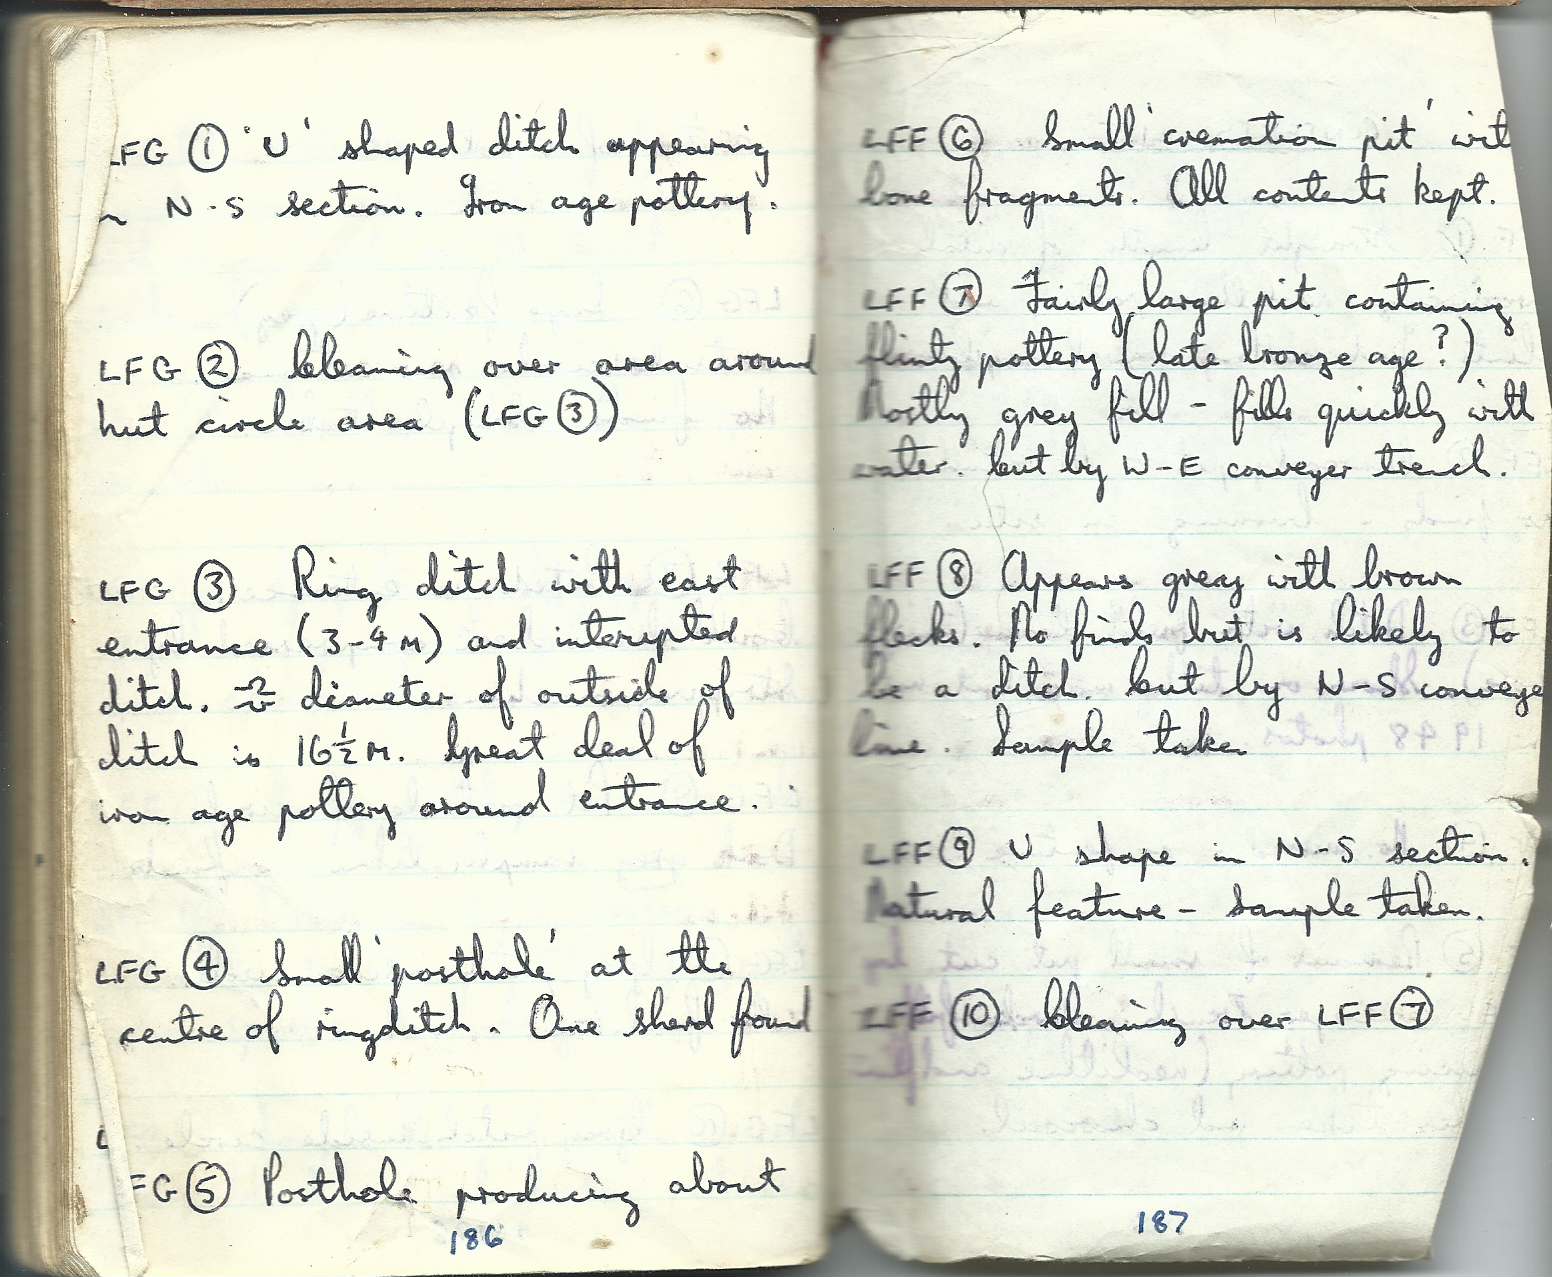 LFG ① 'U' shaped ditch appearing
N-S section. Iron age pottery.
LFG ② Cleaning over area around
hut circle area (LFG ③)
LFG ③ Ring ditch with east
entrance (3-4 M) and interupted
ditch. diameter of outside of
ditch is 16½ M. Great deal of
iron age pottery around entrance.
LFG ④ Small 'posthole' at the
centre of ringditch. One sherd found
FG ⑤ Posthole producing about
186
LFF ⑥ Small 'cremation pit' wit
bone fragments. All contents kept.
LFF ⑦ Fairly large pit containing
flinty pottery (late bronze age?)
Mostly grey fill - fills quickly with
water. Cut by W-E conveyer trench.
LFF ⑧ Appears grey with brown
flecks. No finds but is likely to
be a ditch. Cut by N-S conveye
line. Sample taken
LFF ⑨ U shape in N-S section.
Natural feature - Sample taken.
LFF ⑩ Cleaning over LFF ⑦
187